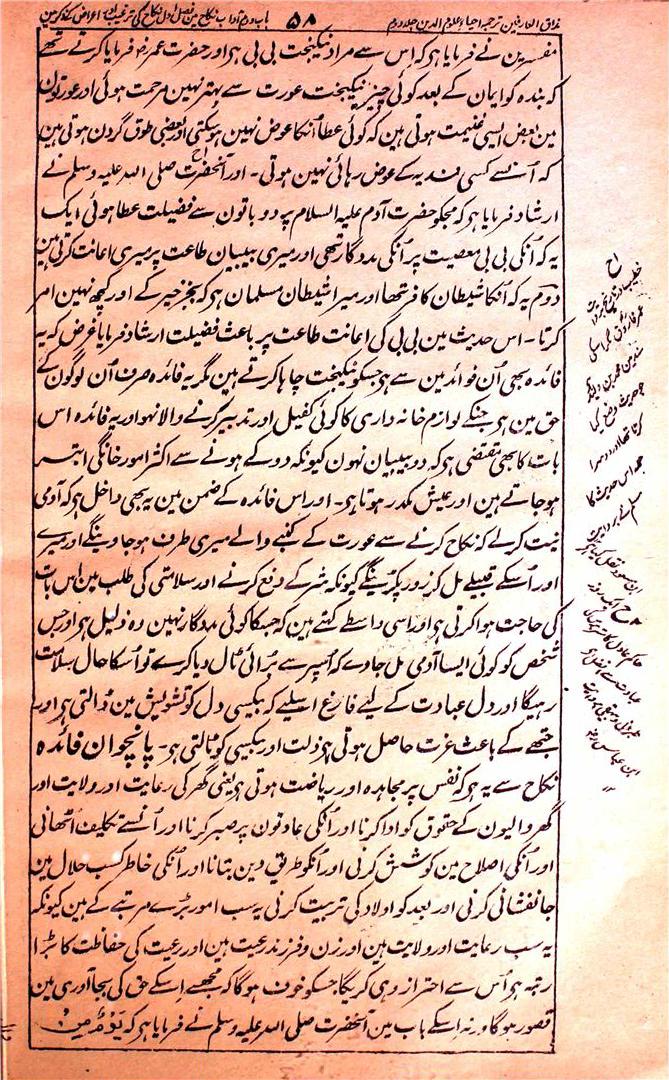 مذاق العارفین ترجمہ احیاء علوم الدین جلد دوم
۵۸
باب دوم آداب نکاح مین فصل اول نکاح کی ترغیب اور اعراض کے ذکر مین
مفسرین نے فرمایا ہے کہ اس سے مراد نیکبخت بی بی ہے اور حضرت عمر رض فرمایا کرتے تھے
کہ بندہ کو ایمان کے بعد کوئی چیز نیکبخت عورت سے بہتر نہین مرحمت ہوئی اور عورتون
مین بعض ایسی غنیمت ہوتی ہین کہ کوئی عطا اُنکا عوض نہین ہوسکتی اور بعضی طوق گردن ہوتی ہین
کہ اُنسے کسی فدیہ کے عوض رہائی نہین ہوتی۔ اور آنحضرت صلی اللہ علیہ وسلم نے
ارشاد فرمایا ہے کہ مجکو حضرت آدم علیہ السلام پر دو باتون سے فضیلت عطا ہوئی ایک
یہ کہ اُنکی بی بی معصیت پر اُنکی مددگار تھی اور میری بیبیان طاعت پر میری اعانت کرتی ہین
دوم یہ کہ اُنکا شیطان کافر تھا اور میرا شیطان مسلمان ہے کہ بجز خیر کے اور کچھ نہین امر
کرتا۔ اس حدیث مین بی بی کی اعانت طاعت پر باعث فضیلت ارشاد فرمایا غرض کہ یہ
فائدہ بھی اُن فوائد مین سے ہے جسکو نیکبخت چاہا کرتے ہین مگر یہ فائدہ صرف اُن لوگون کے
حق مین ہے جنکے لوازم خانہ داری کا کوئی کفیل اور تدبیر کرنے والا نہو اور یہ فائدہ اس
بات کا بھی مقتضی ہے کہ دو بیبیان نہون کیونکہ دو کے ہونے سے اکثر امور خانگی ابتر
ہوجاتے ہین اور عیش مکدر ہوتا ہے۔ اور اس فائدہ کے ضمن مین یہ بھی داخل ہے کہ آدمی
نیت کرلے کہ نکاح کرنے سے عورت کے کنبے والے میری طرف ہوجاوینگے اور میرے
اور اُسکے قبیلے مل کر زور پکڑینگے کیونکہ شر کے دفع کرنے اور سلامتی کی طلب مین اس بات
کی حاجت ہوا کرتی ہے اور اسی واسطے کہتے ہین کہ جسکا کوئی مددگار نہین وہ ذلیل ہے اور جس
شخص کو کوئی ایسا آدمی مل جاوے کہ اُسپر سے بُرائی ٹال دیا کرے تو اُسکا حال سلامت
رہیگا اور دل عبادت کے لیے فارغ اسلیے کہ بیکسی دل کو تشویش مین ڈالتی ہے اور
جتھے کے باعث عزت حاصل ہوتی ہے ذلت اور بیکسی کو ٹالتی ہے۔ پانچوان فائدہ
نکاح سے یہ ہے کہ نفس پر مجاہدہ اور ریاضت ہوتی ہے یعنی گھر کی رعایت اور ولایت اور
گھر والیون کے حقوق کو ادا کرنا اور اُنکی عادتون پر صبر کرنا اور اُنسے تکلیف اُٹھانی
اور اُنکی اصلاح مین کوشش کرنی اور اُنکو طریق دین بتانا اور اُنکی خاطر کسب حلال مین
جانفشانی کرنی اور بعد کو اولاد کی تربیت کرنی یہ سب امور بڑے مرتبے کے ہین کیونکہ
یہ سب رعایت اور ولایت ہین اور زن و فرزند رعیت ہین اور رعیت کی حفاظت کا بڑا
رتبہ ہے اُس سے احتراز وہی کریگا جسکو خوف ہوگا کہ مجھسے اِسکے حق کی بجاآوری مین
قصور ہوگا ورنہ اِسکے باب مین آنحضرت صلی اللہ علیہ وسلم نے فرمایا ہے کہ یَومٌ مِن